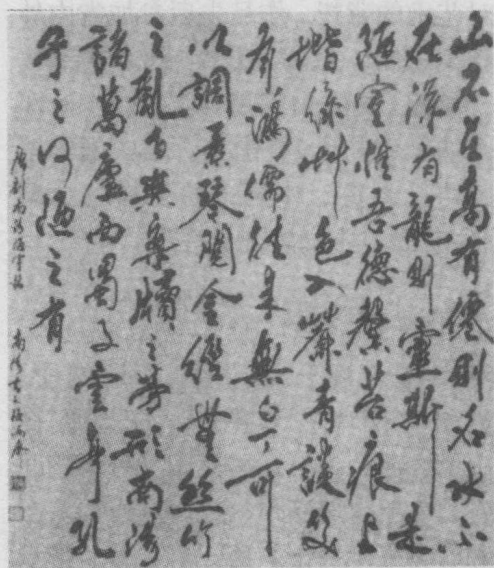 山不在高有僊則名水不
在深有龍則靈斯是
陋室惟吾德馨苔痕上
堦綠艸色入簾青談笑
有鴻儒往來無白丁可
以調素琴閱金經無絲竹
之亂耳無案牘之勞形南陽
諸葛廬西蜀子雲亭孔
子云何陋之有
唐劉禹錫陋室銘